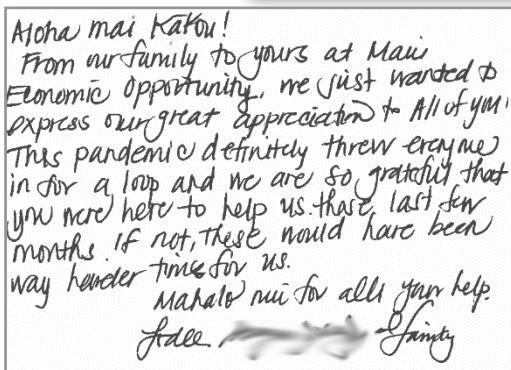 Aloha mai Kakou!
From our family to yours at Maui
Economic Opportunity, we just wanted to
express our great appreciation to All of you.
This pandemic definitely threw everyone
in for a loop and we are so grateful that
you were here to help us those last few
months. If not, these would have been
way harder times for us.
Mahalo nui for all your help.
& family